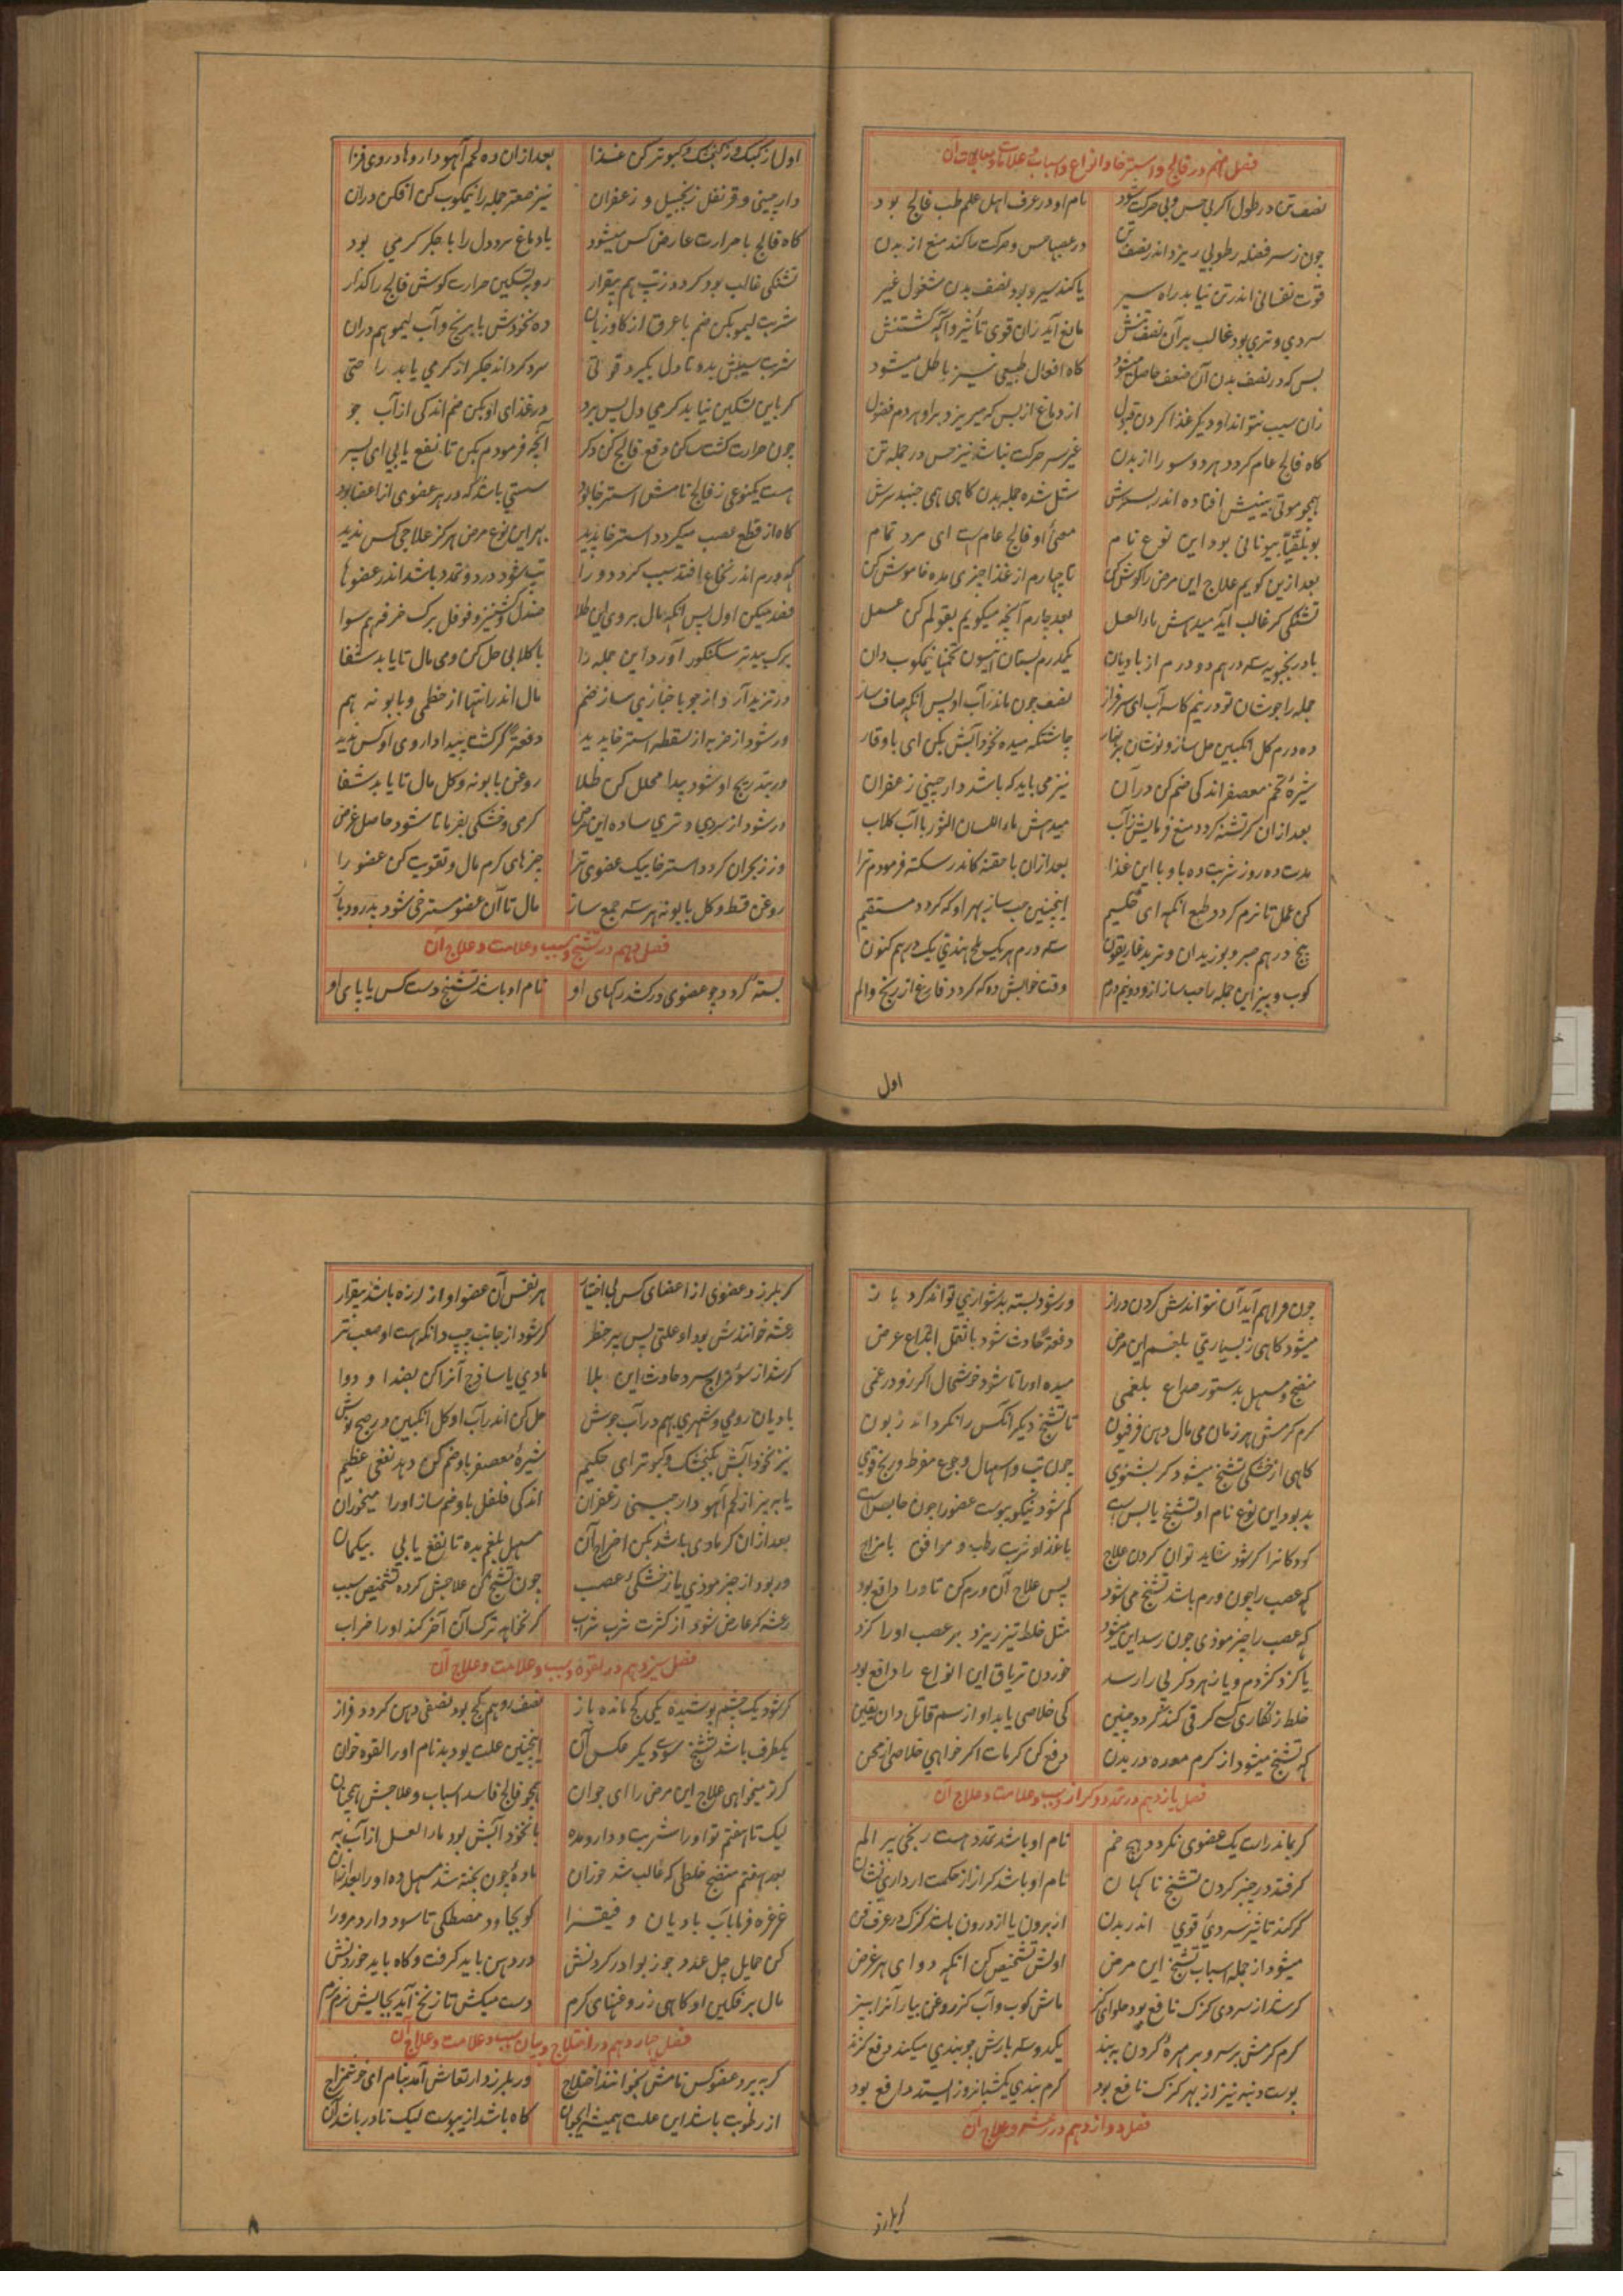 فصل نهم در فالج و استرخا و انواع و اسباب و علامات و معالجات آن
نصف تن در طول اکر بی حس و بی حرکت شود نام او در عرف اهل علم طب فالج بود
چون ز سر فضله رطوبی ریزد اندر نصف تن در عصبها حس و حرکت را کند منع از بدن
قوت نفسانی اندر تن نیابد راه سیر یا کند سیر و بود نصف بدن مشغول غیر
سردی و تری بود غالب بر آن نصف تنش مانع آید زان قوی تأثیر واکه کشتنش
پس که در نصف بدن آن ضعف حاصل میشود کاه افعال طبیعی نیز باطل میشود
زان سبب نتواند او دیکر غذا کردن قبول از دماغ از بس که میریزد بر او هر دم فضول
کاه فالج عام کردد هر دو سو را از بدن غیر سر حرکت نباشد نیز حس در جمله تن
همچو موتی بینیش افتاده اندر بسترش شل شده جمله بدن کاهی همی جنبد سرش
بوبلقیا بیونانی بود این نوع نام معنی او فالج عام است ای مرد تمام
بعد ازین کویم علاج این مرض را کوش کن تا چهارم از غذا چیزی مده خاموش کن
تشنکی کر غالب آید میدهش ماء العسل بعد چارم آنچه میکویم بقولم کن عمل
بادرنجبویه سه درهم دو درم از بادیان یکدرم بستان انیسون تخمها نیمکوب دان
جمله را جوشان تو در نیم کاسه آب ای سرفراز نصف چون ماند ز آب او پس انکه صاف ساز
ده درم کل انکبین حل ساز و نوشان بر نهار چاشتکه میده نخود آبش بکن ای با وقار
شیره تخم معصفر اندکی ضم کن در آن نیز می باید که باشد دارچینی زعفران
بعد از ان کر تشنه کردد منع فرمایش ز آب میدهش ماء اللسان الثور با آب کلاب
مدت ده روز شربت ده باو با این غذا بعد از ان با حقنه کاندر سکته فرمودم ترا
کن عمل تا نرم کردد طبع انکه ای حکیم اینچنین حب ساز بهر او که کردد مستقیم
پنج درهم صبر و بوزیدان و تربد غاریقون سه درم هر یک ملح هندی یک درهم کنون
کوب و بیز این جمله را حب ساز از و دو نیم درم وقت خوابش ده که کردد فارغ از رنج و الم
اول
اول از کبک و ز کنجشک و کبوتر کن غذا بعد از ان ده لحم آهو دارو ها در وی فزا
دارچینی و قرنفل زنجبیل و زعفران نیز صعتر جمله را نیمکوب کن افکن در ان
کاه فالج با حرارت عارض کس میشود با دماغ سرد دل را با جکر کرمی بود
تشنکی غالب بود کردد ز تب هم بیقرار رو بتسکین حرارت کوش فالج را کذار
شربت لیمو بکن ضم با عرق از کاوزبان ده نخودش با برنج و آب لیمو هم در ان
شربت سیبش بده تا دل بکیرد قوتی سرد کرداند جکر از کرمی یابد راحتی
کر باین تسکین نیابد کرمی دل پس برد در غذای او بکن ضم اندکی از آب جو
چون حرارت کشت ساکن دفع فالج کن دکر آنچه فرمودم بکن تا نفع یابی ای پسر
هست یکنوعی ز فالج نامش استرخا بود سستی باشد که در هر عضوی از اعضا بود
کاه از قطع عصب میکردد استرخا پدید بهر این نوع مرض هرکز علاجی کس ندید
که ورم اندر نخاع افتد سبب کردد ورا تب شود درد و تمدد باشد اندر عضوها
فصد میکن اول پس انکه مال بر وی این طلا صندل و کشنیز و فوفل برک خرفه هم سوا
برک بید تر سکنکور آور و این جمله را با کلابی حل کن و می مال تا یابد شفا
در تزید آرد از جو با خبازی ساز ضم مال اندر انتها از خطمی و بابونه هم
ور شود از ضربه از سقطه استرخا پدید دفعة کر کشت پیدا داروی او کس ندید
ور بتدریج او شود پیدا محلل کن طلا روغن بابونه و کل مال تا یابد شفا
ور شود از سردی و تری ساده این مرض کرمی و خشکی بفرما تا شود حاصل غرض
ور ز بحران کردد استرخا بیک عضوی ترا چیزهای کرم مال و تقویت کن عضو را
روغن قسط و کل بابونه هر سه جمع ساز مال تا آن عضو مسترخی شود بدرود باز
فصل دهم در تشنج و سبب و علامت و علاج آن
بسته کردد چو عضوی در کشد رکهای او نام او باشد تشنج دست کس یا پای او
چون فراهم آید آن نتواندش کردن دراز ور شود بسته بدشواری تواند کرد باز
میشود کاهی ز بسیاری بلغم این مرض دفعة حادث شود با ثقل اجماع عرض
منضج و مسهل بدستور صداع بلغمی میده او را تا شود خوشحال اکر زو در غمی
کرم کرمش هر زمان می مال دهن فرفیون تا تشنج دیکر آنکس را نکرداند زبون
کاهی از خشکی تشنج میشود کر بشنوی چون تب و اسهال و جوع مفرط و رنج قوی
بد بود این نوع نام او تشنج یابس است کم شود نیکو یبوست عضو را چون حابس است
کودکانرا کر شود شاید توان کردن علاج با غذا و شربت رطب و موافق با مزاج
که عصب را چون ورم باشد تشنج می شود پس علاج آن ورم کن تا ورا دافع بود
که عصب را چیز موذی چون رسد این میشود مثل خلط تیز ریزد بر عصب او را کزد
یا کزد کژدم و یا زهر دکر بی را رسد خوردن تریاق این انواع را دافع بود
خلط زنکاری کسی کر قی کند کردد چنین کی خلاصی یابد او از سم قاتل دان یقین
که تشنج میشود از کرم معده در بدن دفع کن کرمات اکر خواهی خلاصی از محن
فصل یازدهم در تمدد و کزاز و سبب و علامت و علاج آن
کر بماند راست یک عضوی نکردد هیچ خم نام او باشد تمدد هست رنجی پر الم
کر فتد در چنبر کردن تشنج ناکهان نام او باشد کزاز از حکمت ار داری نشان
کر کند تاثیر سردی قوی اندر بدن از برون یا از درون باشد کزک در عرف فن
میشود از جمله اسباب تشنج این مرض اولش تشخیص کن انکه دوای هر غرض
کر شد از سردی کزک نافع بود حلوای کز ماش کوب و آب کز روغن بیار آنرا بپز
کرم کرمش بر سر و بر مهره کردن به بند یکدو سه بارش چو بندی میکند دفع کزند
پوست دنبه نیز از بهر کزک نافع بود کرم بندی یکشبانروز ایستد دافع بود
فصل دوازدهم در رعشه و علاج آن
کر بلرزد
کر بلرزد عضوی از اعضای کس بی اختیار هر نفس آن عضو او از لرزه باشد بیقرار
رعشه خوانندش بود او علتی پس پر خطر کر شود از جانب چپ دانکه هست او صعب تر
کر شد از سوء مزاج سرد حادث این بلا مادی یا ساذج آنرا کن بغذا و دوا
بادیان رومی و شهری بهم در آب جوش حل کن اندر آب او کل انکبین و صبح نوش
نیز نخود آبش بکنجشک و کبوتر ای حکیم شیره معصفر باو ضم کن دهد نفعی عظیم
یا بپز از لحم آهو دارچینی زعفران اندکی فلفل باو ضم ساز او را میخوران
بعد از ان کر مادی باشد بکن اخراج آن مسهل بلغم بده تا نفع یابی بیکمان
ور بود از چیز موذی یا ز خشکی عصب چون تشنج کن علاجش کرده تشخیص سبب
رعشه کر عارض شود از کثرت شرب شراب کر نخواهد ترک آن آخر کند او را خراب
فصل سیزدهم در لقوه و سبب و علامت و علاج آن
کر شود یک چشم پوشیده یکی کج مانده باز نصف رو هم کج بود نصفی دهن کردد فراز
یکطرف باشد تشنج سوی دیکر عکس آن اینچنین علت بود بد نام او را لقوه خوان
کر تو میخواهی علاج این مرض را ای جوان همچو فالج فاسد اسباب و علاجش همچنان
لیک تا هفتم تو او را شربت و دارو مده با نخود آبش بود ماء العسل از آب به
بعد هفتم منضج خلطی که غالب شد خوران ماده چون پخته شد مسهل ده او را بعد از ان
غرغره فرما بآب بادیان و فیقرا کو بخاود مصطکی تا سود دارد مر ورا
کن حمایل چل عدد جوز بوا در کردنش در دهن باید کرفت و کاه باید خوردنش
مال بر فکین او کاهی ز روغنهای کرم دست میکش تا زنخ آید بجایش نرم نرم
فصل چهاردهم در اختلاج و بیان سبب و علامت و علاج آن
کر بپرد عضو کس نامش بخوانند اختلاج ور بلرزد ارتعاش آمد بنام ای خوش مزاج
از رطوبت باشد این علت همیشه ای جوان کاه باشد از یبوست لیک نادر باشد آن
۸